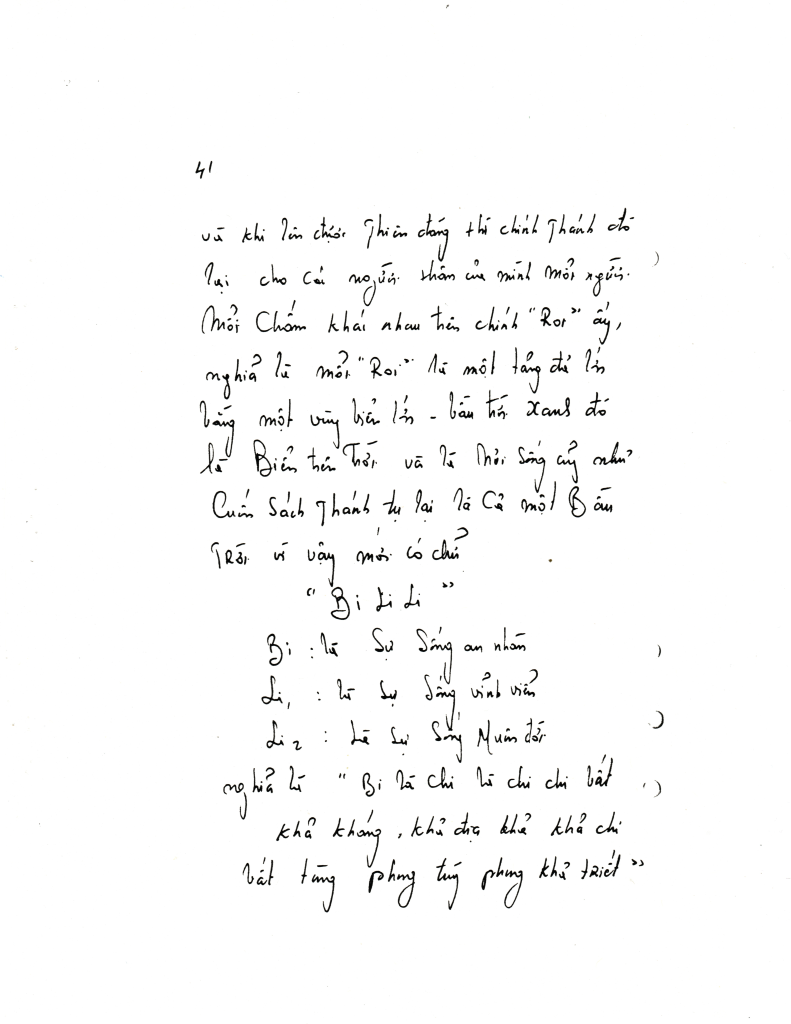 41
và khi lên được Thiên đáng thì chính Thánh đó
lại cho cái người thân của mình mỗi người
Mỗi Chấm khái nhau trên chính "Roi" ấy,
nghĩa là mỗi "Roi" là một tảng đá lớn
bằng một vùng biển lớn - bầu trời xanh đó
là Biển trên Trời và là Thời Sống ấy như
Cuốn Sách Thánh tự lại là Cả một Bầu
Trời vì vậy mới có chữ
"Bi Li Li"
Bi : là Sự Sống an nhàn
Li₁ : là Sự Sống vĩnh viễn
Li₂ : Là Sự Sống Muôn đời
nghĩa là "Bi là chi là chi chi bất
khả kháng, khả địa khả khả chi
bất tùng phụng tuý phụng khả triết"